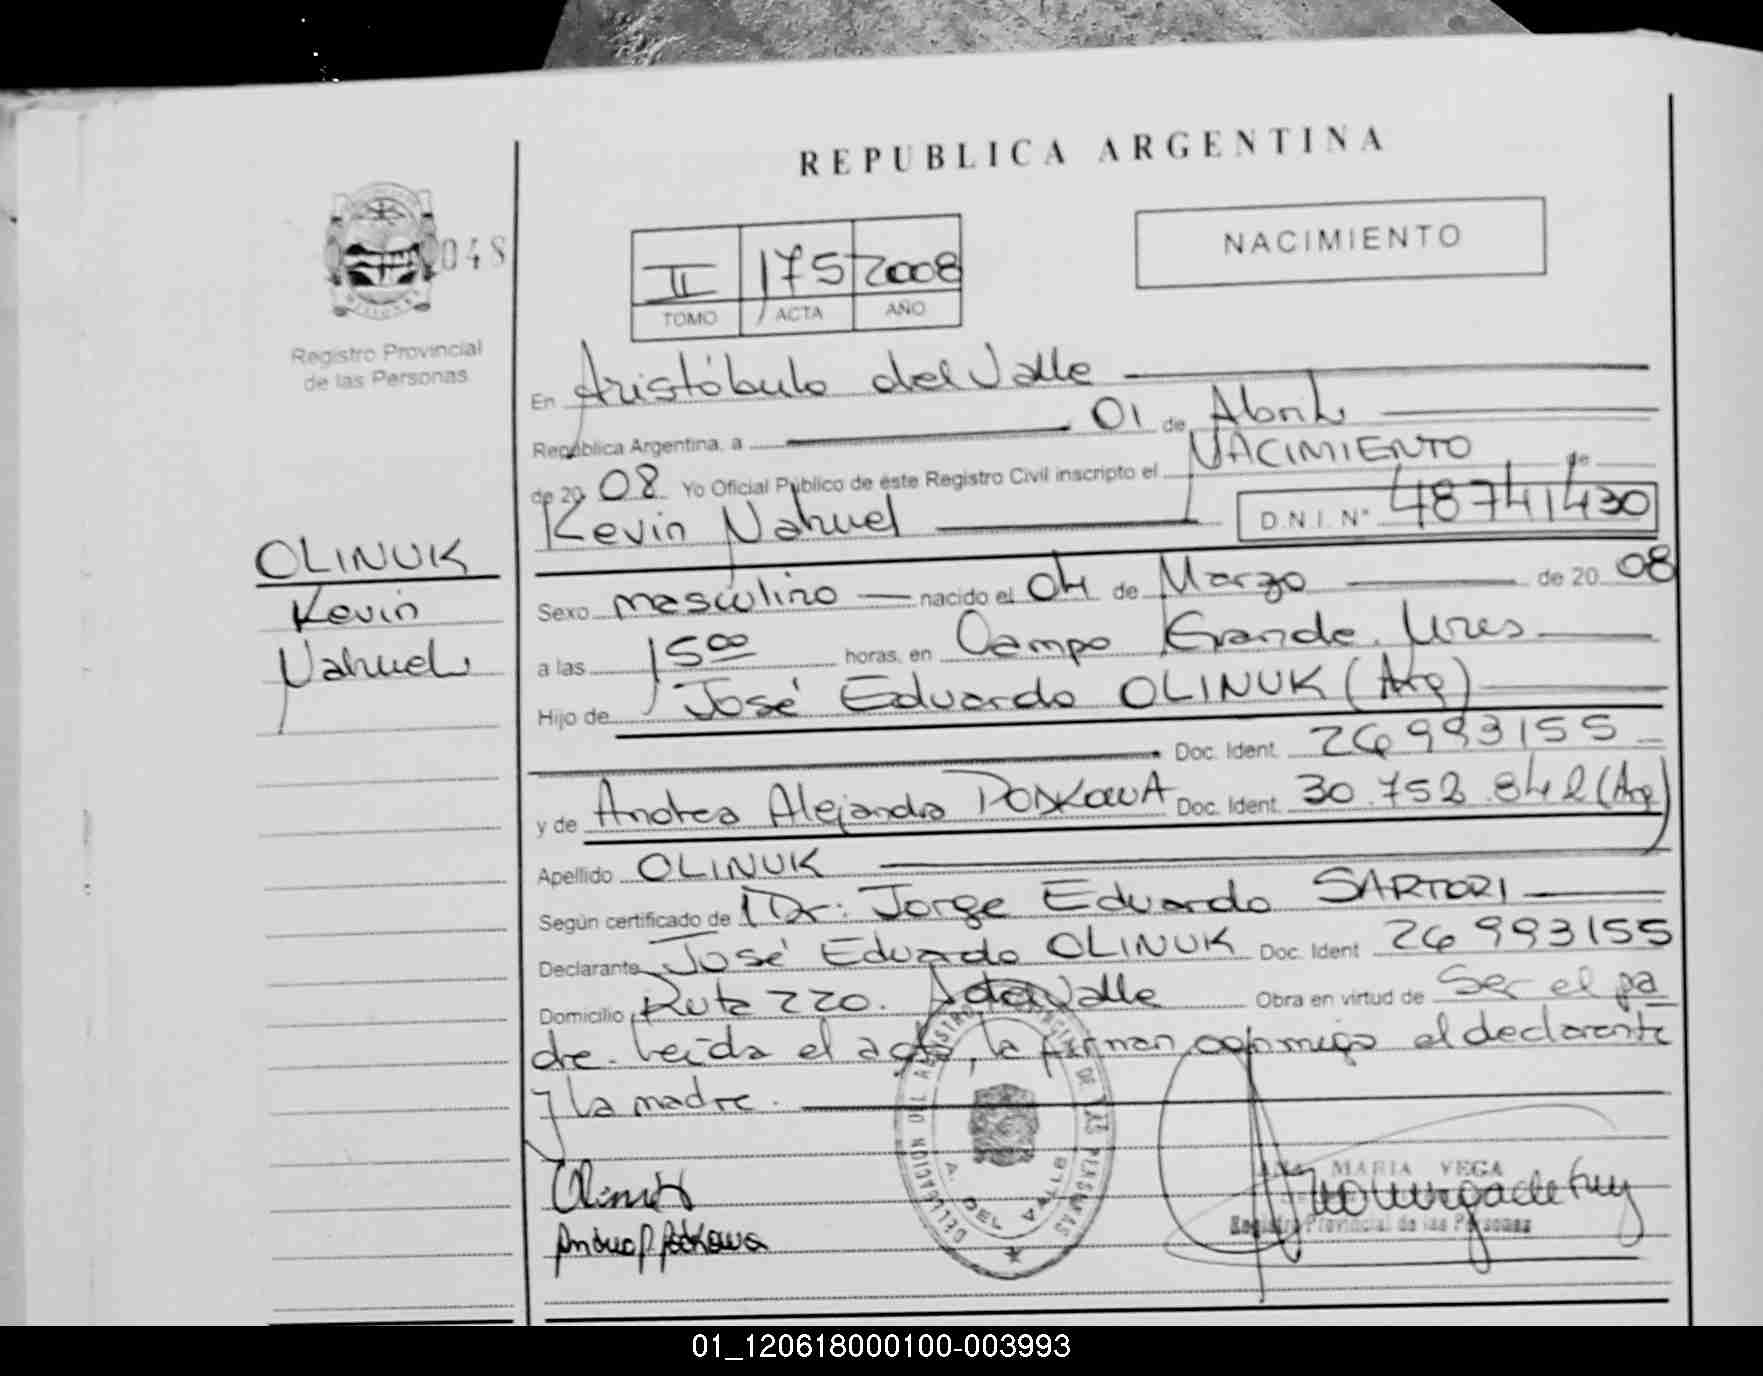 REPUBLICA ARGENTINA
048
NACIMIENTO
II 175 2008
TOMO ACTA AÑO
Registro Provincial
de las Personas
En Aristóbulo del Valle
República Argentina, a 01 de Abril
de 20 08 Yo Oficial Público de éste Registro Civil inscripto el NACIMIENTO de
Kevin Nahuel D.N.I. Nº 48741430
OLINUK
Kevin
Nahuel
Sexo masculino nacido el 04 de Marzo de 20 08
a las 15 00 horas, en Campo Grande. Mnes
Hijo de José Eduardo OLINUK (Arg)
Doc. Ident. 26993155
y de Andrea Alejandra Doc. Ident. 30.752.842 (Arg)
Apellido OLINUK
Según certificado de Dr. Jorge Eduardo SARTORI
Declarante José Eduardo OLINUK Doc. Ident 26993155
Domicilio Ruta 220. A del Valle Obra en virtud de Ser el pa
dre. Leída el acta, la firman conmigo el declarante
y la madre.
DELEGACION DEL REGISTRO PROVINCIAL DE LAS PERSONAS
A. DEL VALLE
MARIA VEGA
Registro Provincial de las Personas
01_120618000100-003993